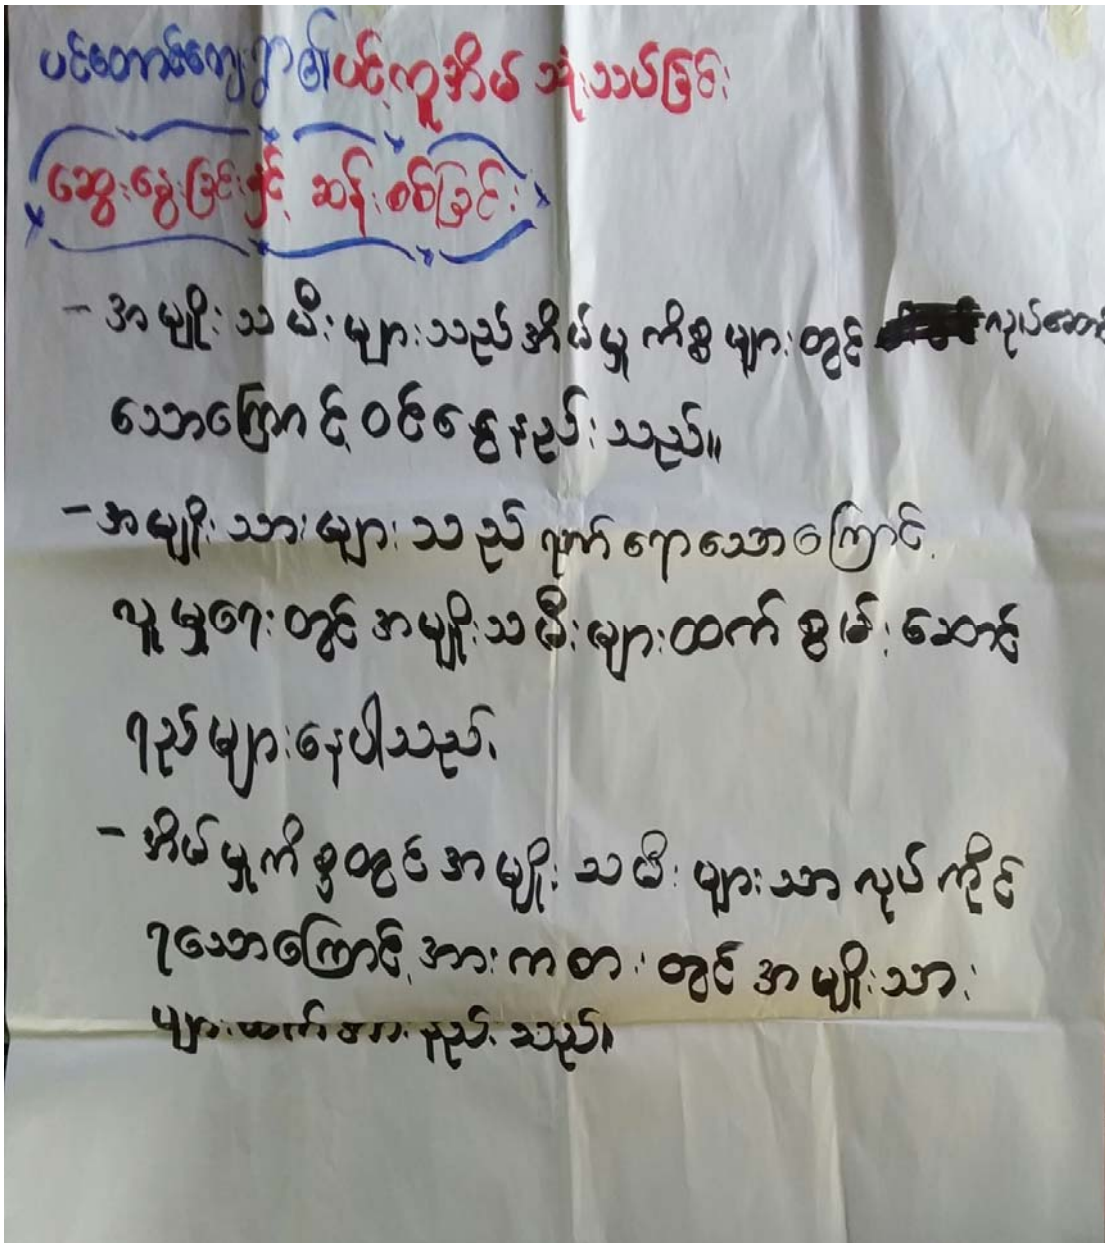 ပင်တောင်ကျေးရွာ၏ ပင့်ကူအိမ် သုံးသပ်ခြင်း
ဆွေးနွေးခြင်းနှင့် ဆန်းစစ်ခြင်း
- အမျိုးသမီးများသည် အိမ်မှုကိစ္စများတွင် လုပ်ဆောင်
သောကြောင့် ဝင်ငွေနည်းသည်။
- အမျိုးသားများသည် ရှက်ရောသောကြောင့်
လူမှုရေးတွင် အမျိုးသမီးများထက် စွမ်းဆောင်
ရည်များနေပါသည်။
- အိမ်မှုကိစ္စတွင် အမျိုးသမီးများသာ လုပ်ကိုင်
ရသောကြောင့် အားကစားတွင် အမျိုးသား
များထက်အားနည်းသည်။